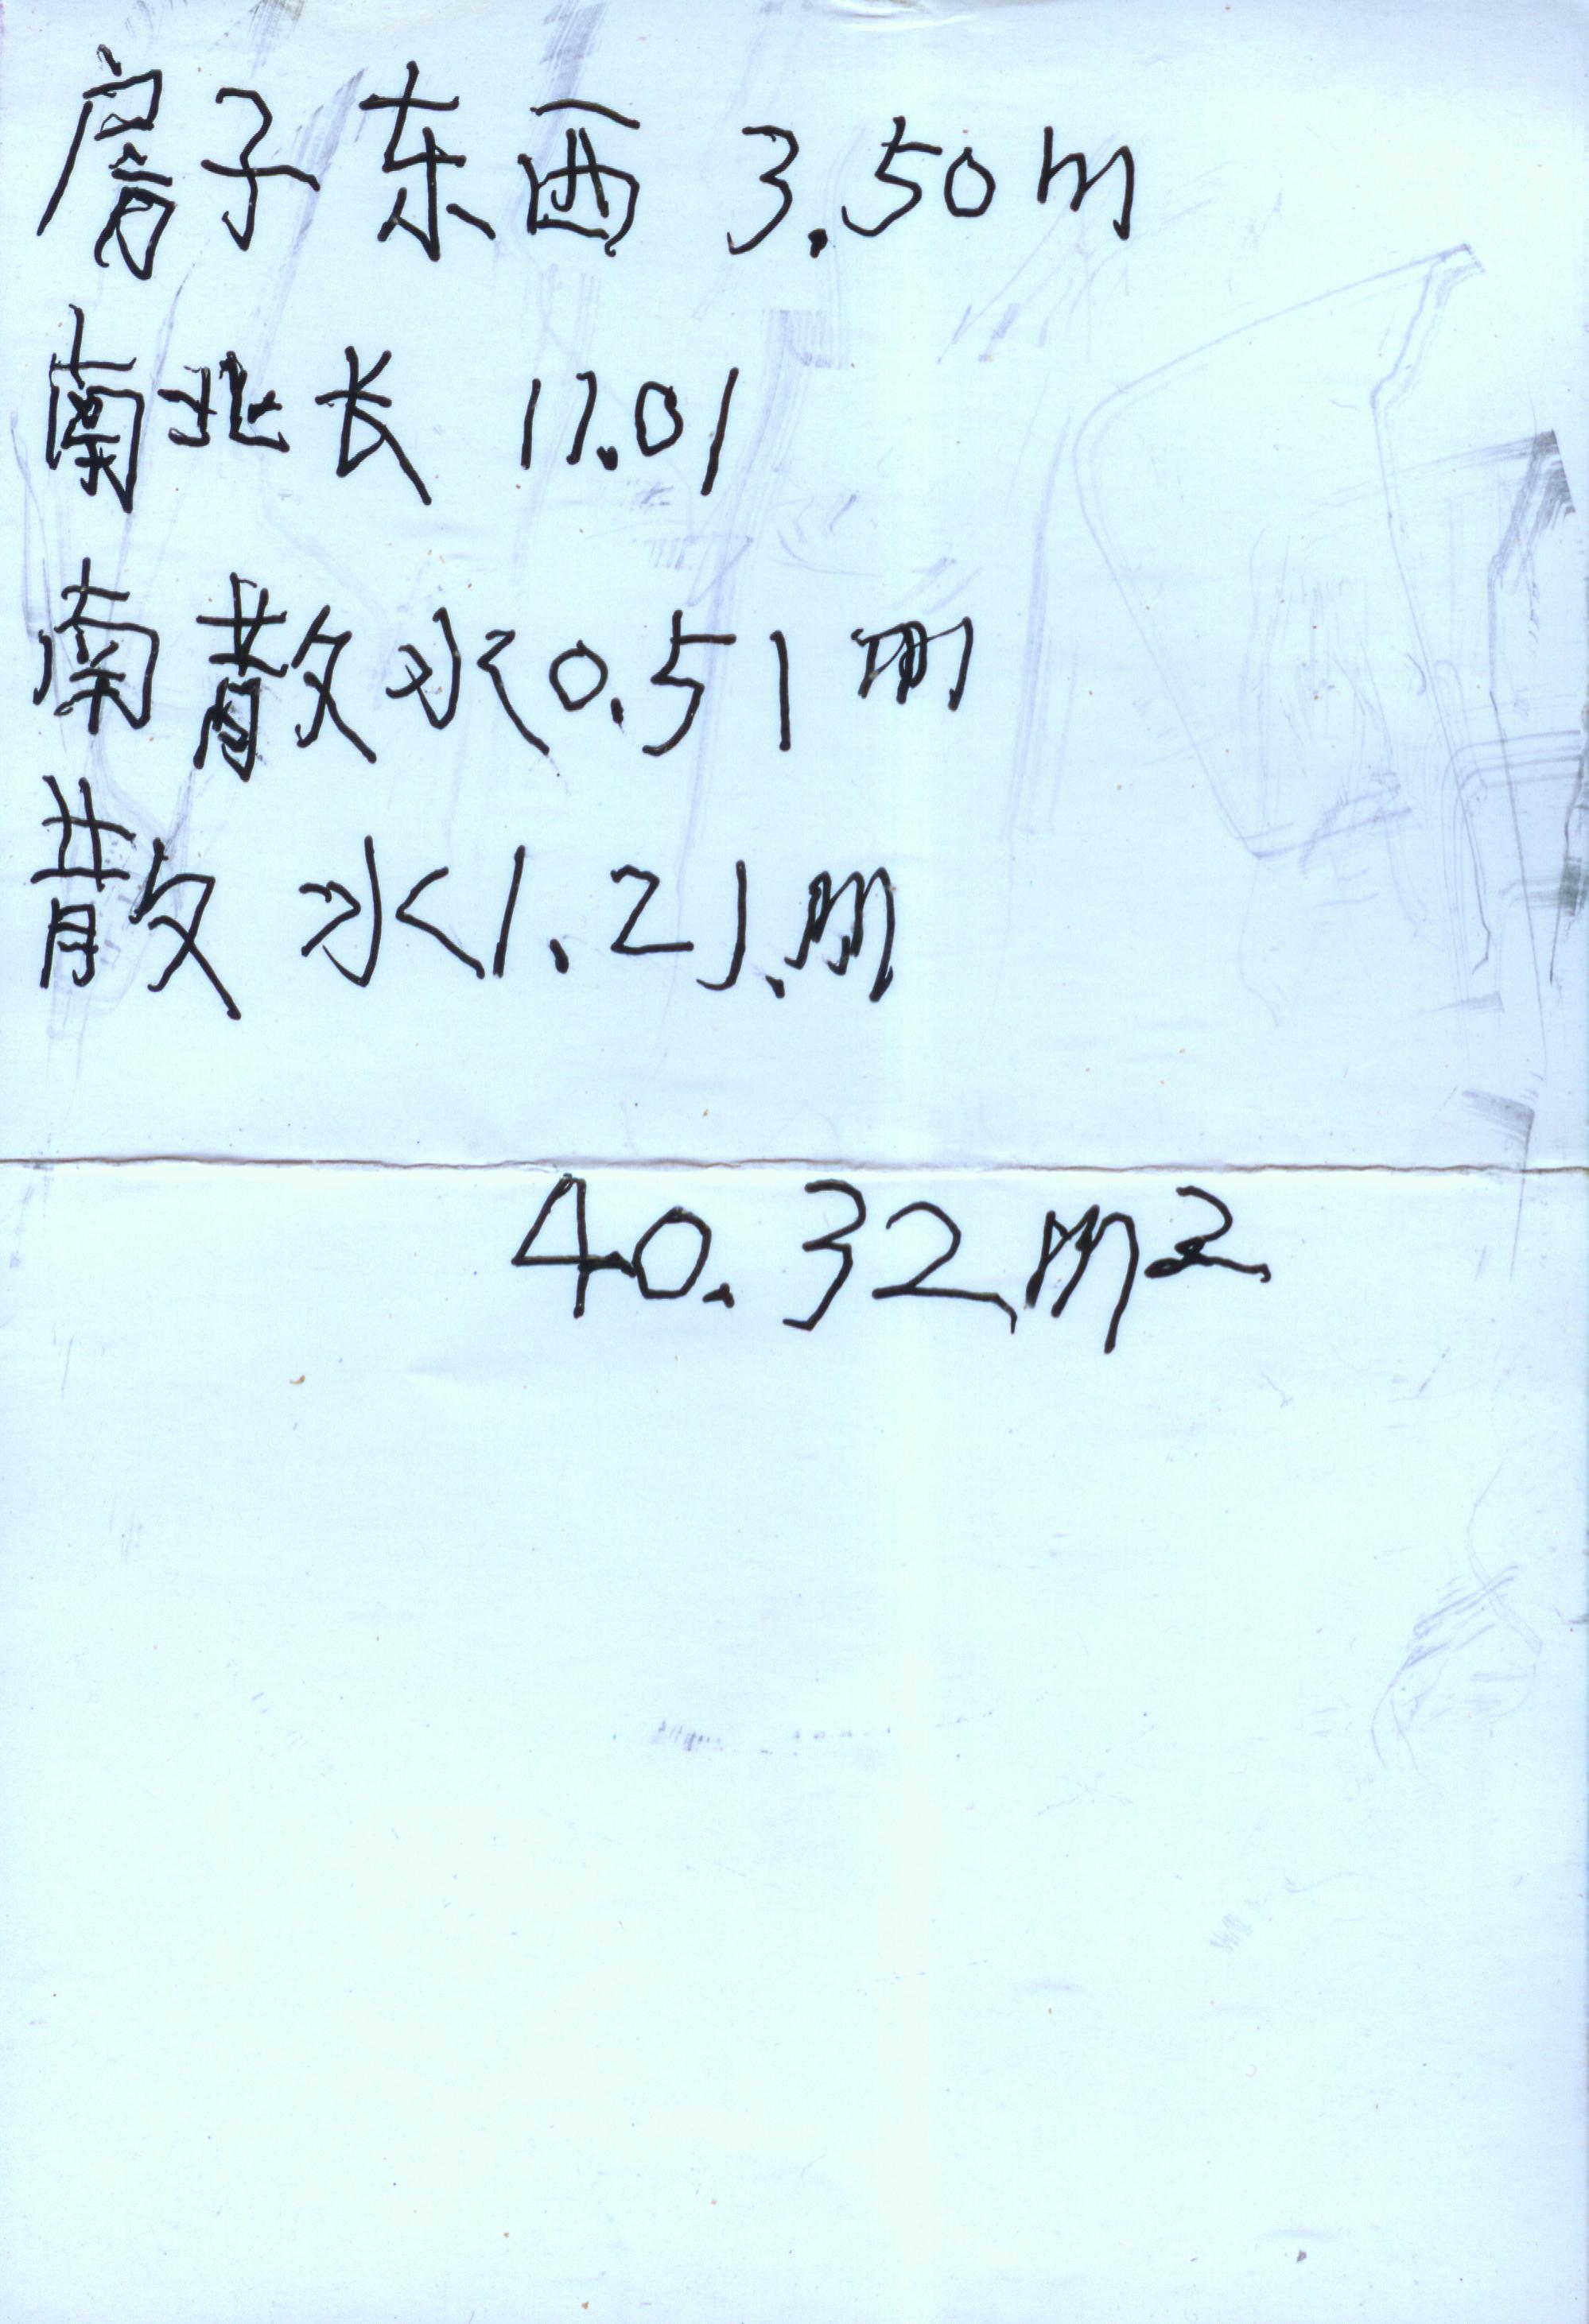 房子东西 3.50m
南北长 11.01
南散水0.51m
散水1.21m
40.32m²